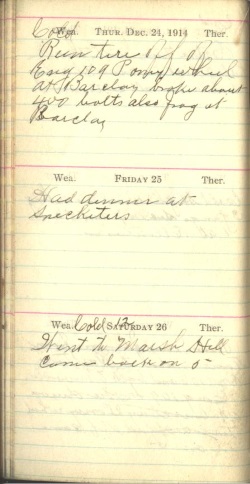 Cold Wea. THUR. DEC. 24, 1914 Ther.
Run tire R.F. off
Eng 109 Pony wheel
at Barclay broke about
400 bolts also frog at
Barclay
Wea. FRIDAY 25 Ther.
Had dinner at
Wea. Cold SATURDAY 26 Ther.
Went to Marsh Hill
Came back on 5